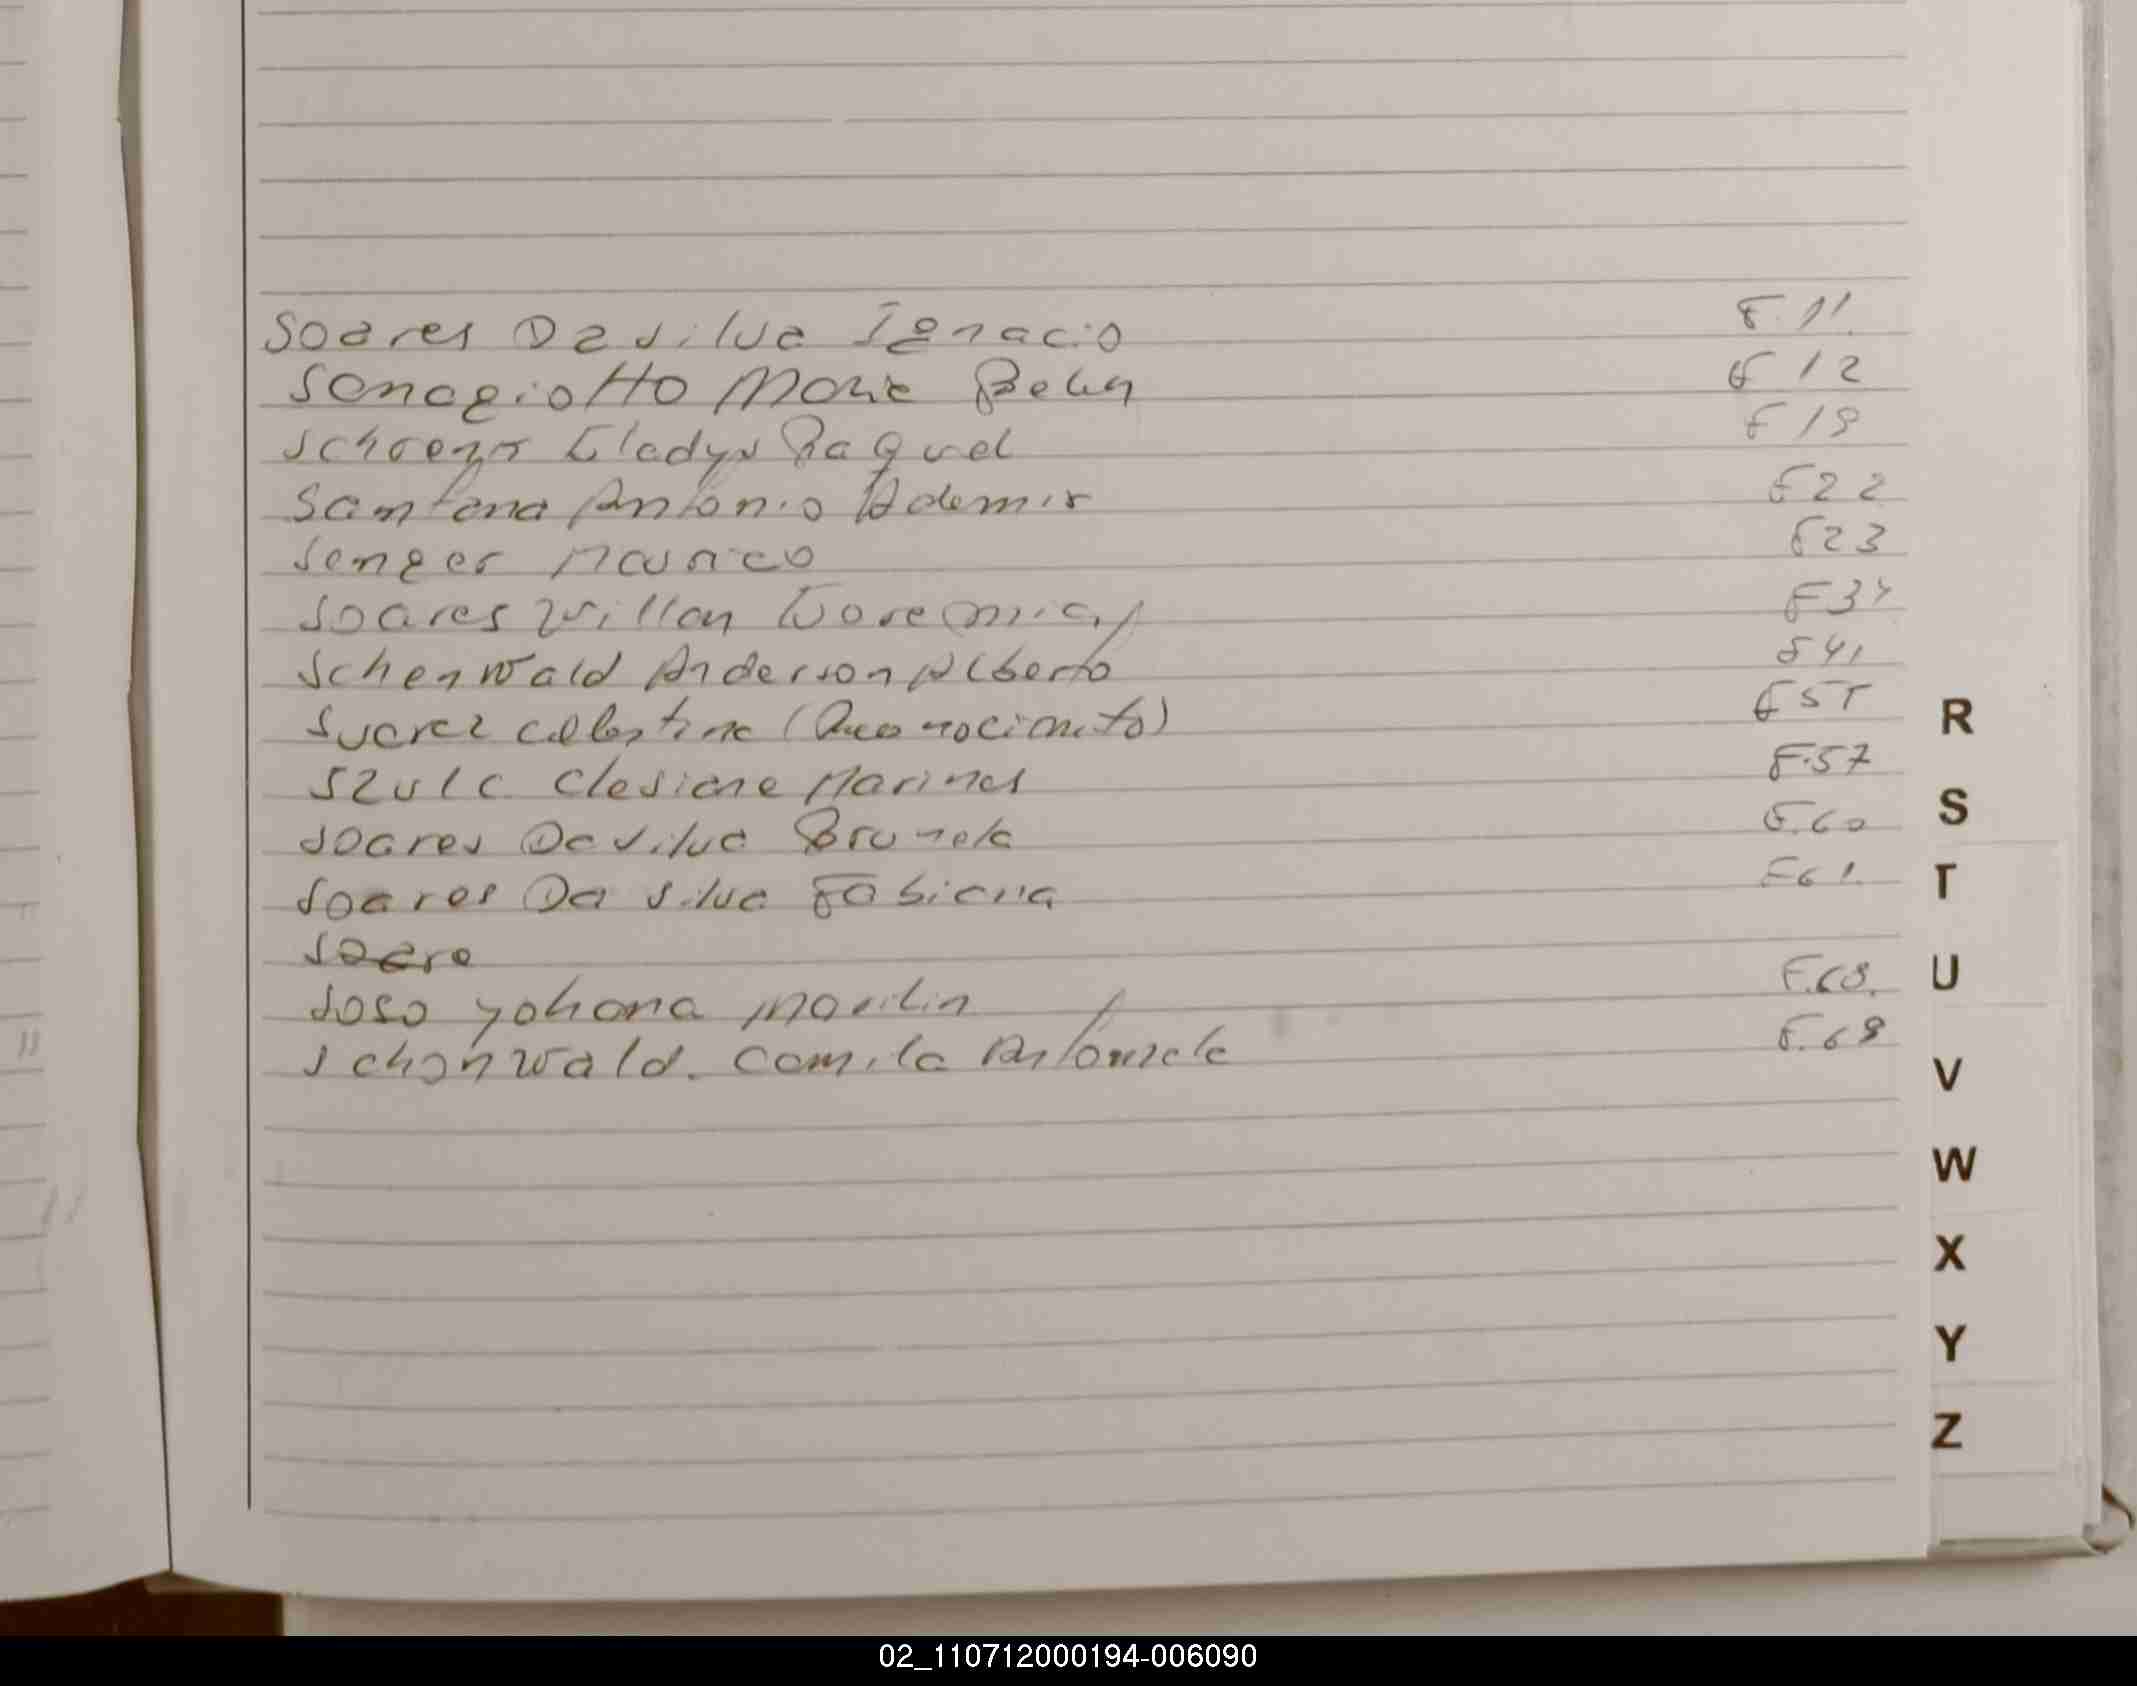 Soares Da silva Ignacio F.11.
Senagiotto Maria Belen F 12
Schoenr Gladys Raquel F 19
Santana Antonio Ademir F22
Senger Maurico F23
Soares Willan F34
Schenwald Anderson Alberto F41
Suarez celestina (Reconocimito) F55
Szulc Clesiane Marines F.57
Soares Da silva Brunela F.60
Soares Da silva Fabiana F61.
Soare
Soso yohana Marilin F.68.
Schonwald. Camila Antonela F.69
R
S
T
U
V
W
X
Y
Z
02_110712000194-006090